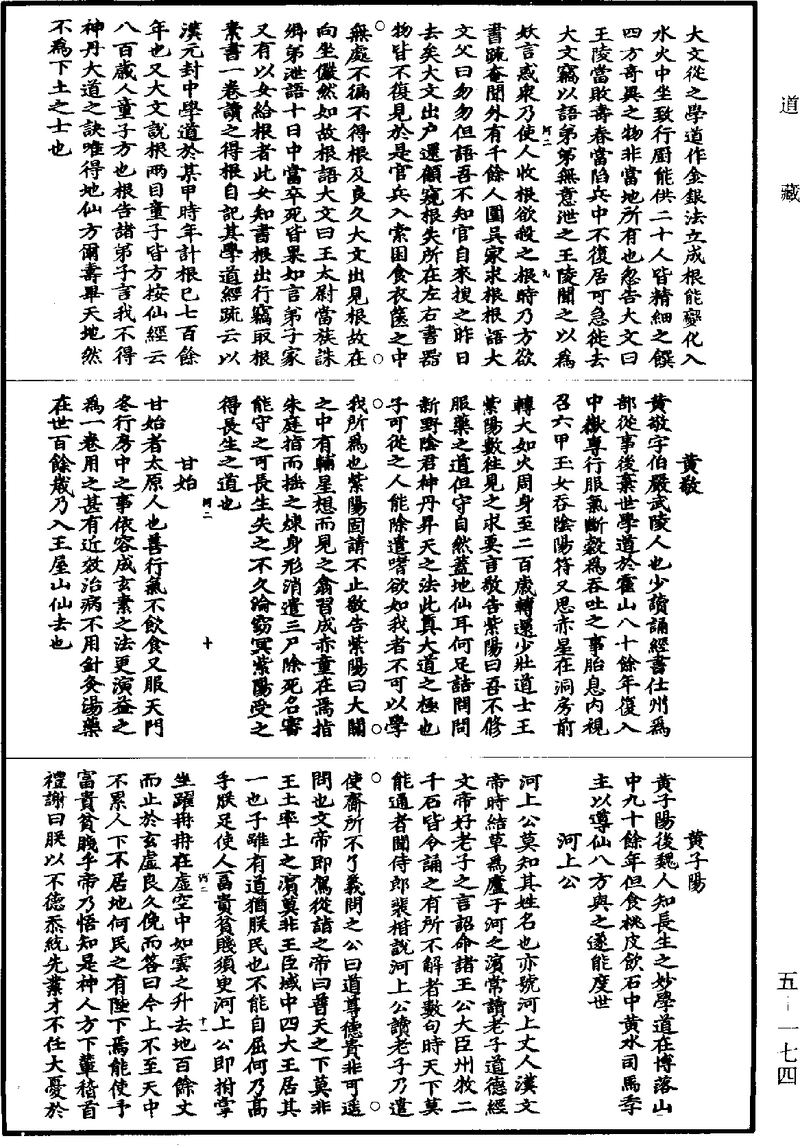 道藏
大文從之學道作金銀法立成根能變化入
水火中坐致行廚能供二十人皆精細之饌
四方奇異之物非當地所有也忽告大文曰
王陵當敗壽春當陷兵中不復居可急徙去
大文竊以語弟弟無意泄之王陵聞之以為
妖言惑衆乃使人收根欲殺之根時乃方欲
書疏奄聞外有千餘人圍吳家求根根語大
文父曰勿勿但語吾不知官自來搜之昨日
去矣大文出户還顧窺根失所在左右書器
物皆不復見於是官兵入索困食衣篋之中
無處不徧不得根及良久大文出見根故在
向坐儼然如故根語大文曰王太尉當族誅
卿弟泄語十日中當卒死皆果如言弟子家
又有以女給根者此女知書根出行竊取根
素書一卷讀之得根自記其學道經疏云以
漢元封中學道於某甲時年計根已七百餘
年也又大文說根兩目童子皆方按仙經云
八百歲人童子方也根告諸弟子言我不得
神丹大道之訣唯得地仙方爾壽畢天地然
不為下土之士也
河二
九
黃敬
黃敬字伯嚴武陵人也少讀誦經書仕州為
部從事後棄世學道於霍山八十餘年復入
中嶽專行服氣斷穀為吞吐之事胎息內視
召六甲玉女吞陰陽符又思赤星在洞房前
轉大如火周身至二百歲轉還少壯道士王
紫陽數往見之求要言敬告紫陽曰吾不修
服藥之道但守自然蓋地仙耳何足詰問問
新野陰君神丹昇天之法此真大道之極也
子可從之人能除遣嗜欲如我者不可以學
我所為也紫陽固請不止敬告紫陽曰大關
之中有輔星想而見之翕習成赤童在焉指
朱庭指而搖之煉身形消遣三尸除死名審
能守之可長生失之不久淪窈冥紫陽受之
得長生之道也
河二
十
甘始
甘始者太原人也善行氣不飲食又服天門
冬行房中之事依容成玄素之法更演益之
為一卷用之甚有近效治病不用針灸湯藥
在世百餘歲乃入王屋山仙去也
黃子陽
黃子陽後魏人知長生之妙學道在博落山
中九十餘年但食桃皮飲石中黃水司馬季
主以導仙八方與之遂能度世
河上公
河上公莫知其姓名也亦號河上丈人漢文
帝時結草為廬于河之濱常讀老子道德經
文帝好老子之言詔命諸王公大臣州牧二
千石皆令誦之有所不解者數句時天下莫
能通者聞侍郎裴楷說河上公讀老子乃遣
使齎所不了義問之公曰道尊德貴非可遥
問也文帝即駕從詣之帝曰普天之下莫非
王土率土之濱莫非王臣域中四大王居其
一也子雖有道猶朕民也不能自屈何乃高
乎朕足使人冨貴貧賤須臾河上公即拊掌
坐躍冉冉在虛空中如雲之升去地百餘丈
而止於玄虛良久俛而答曰今上不至天中
不累人下不居地何民之有陛下焉能使予
富貴貧賤乎帝乃悟知是神人方下輦稽首
禮謝曰朕以不德忝統先業才不任大憂於
河二
十一
五—一七四